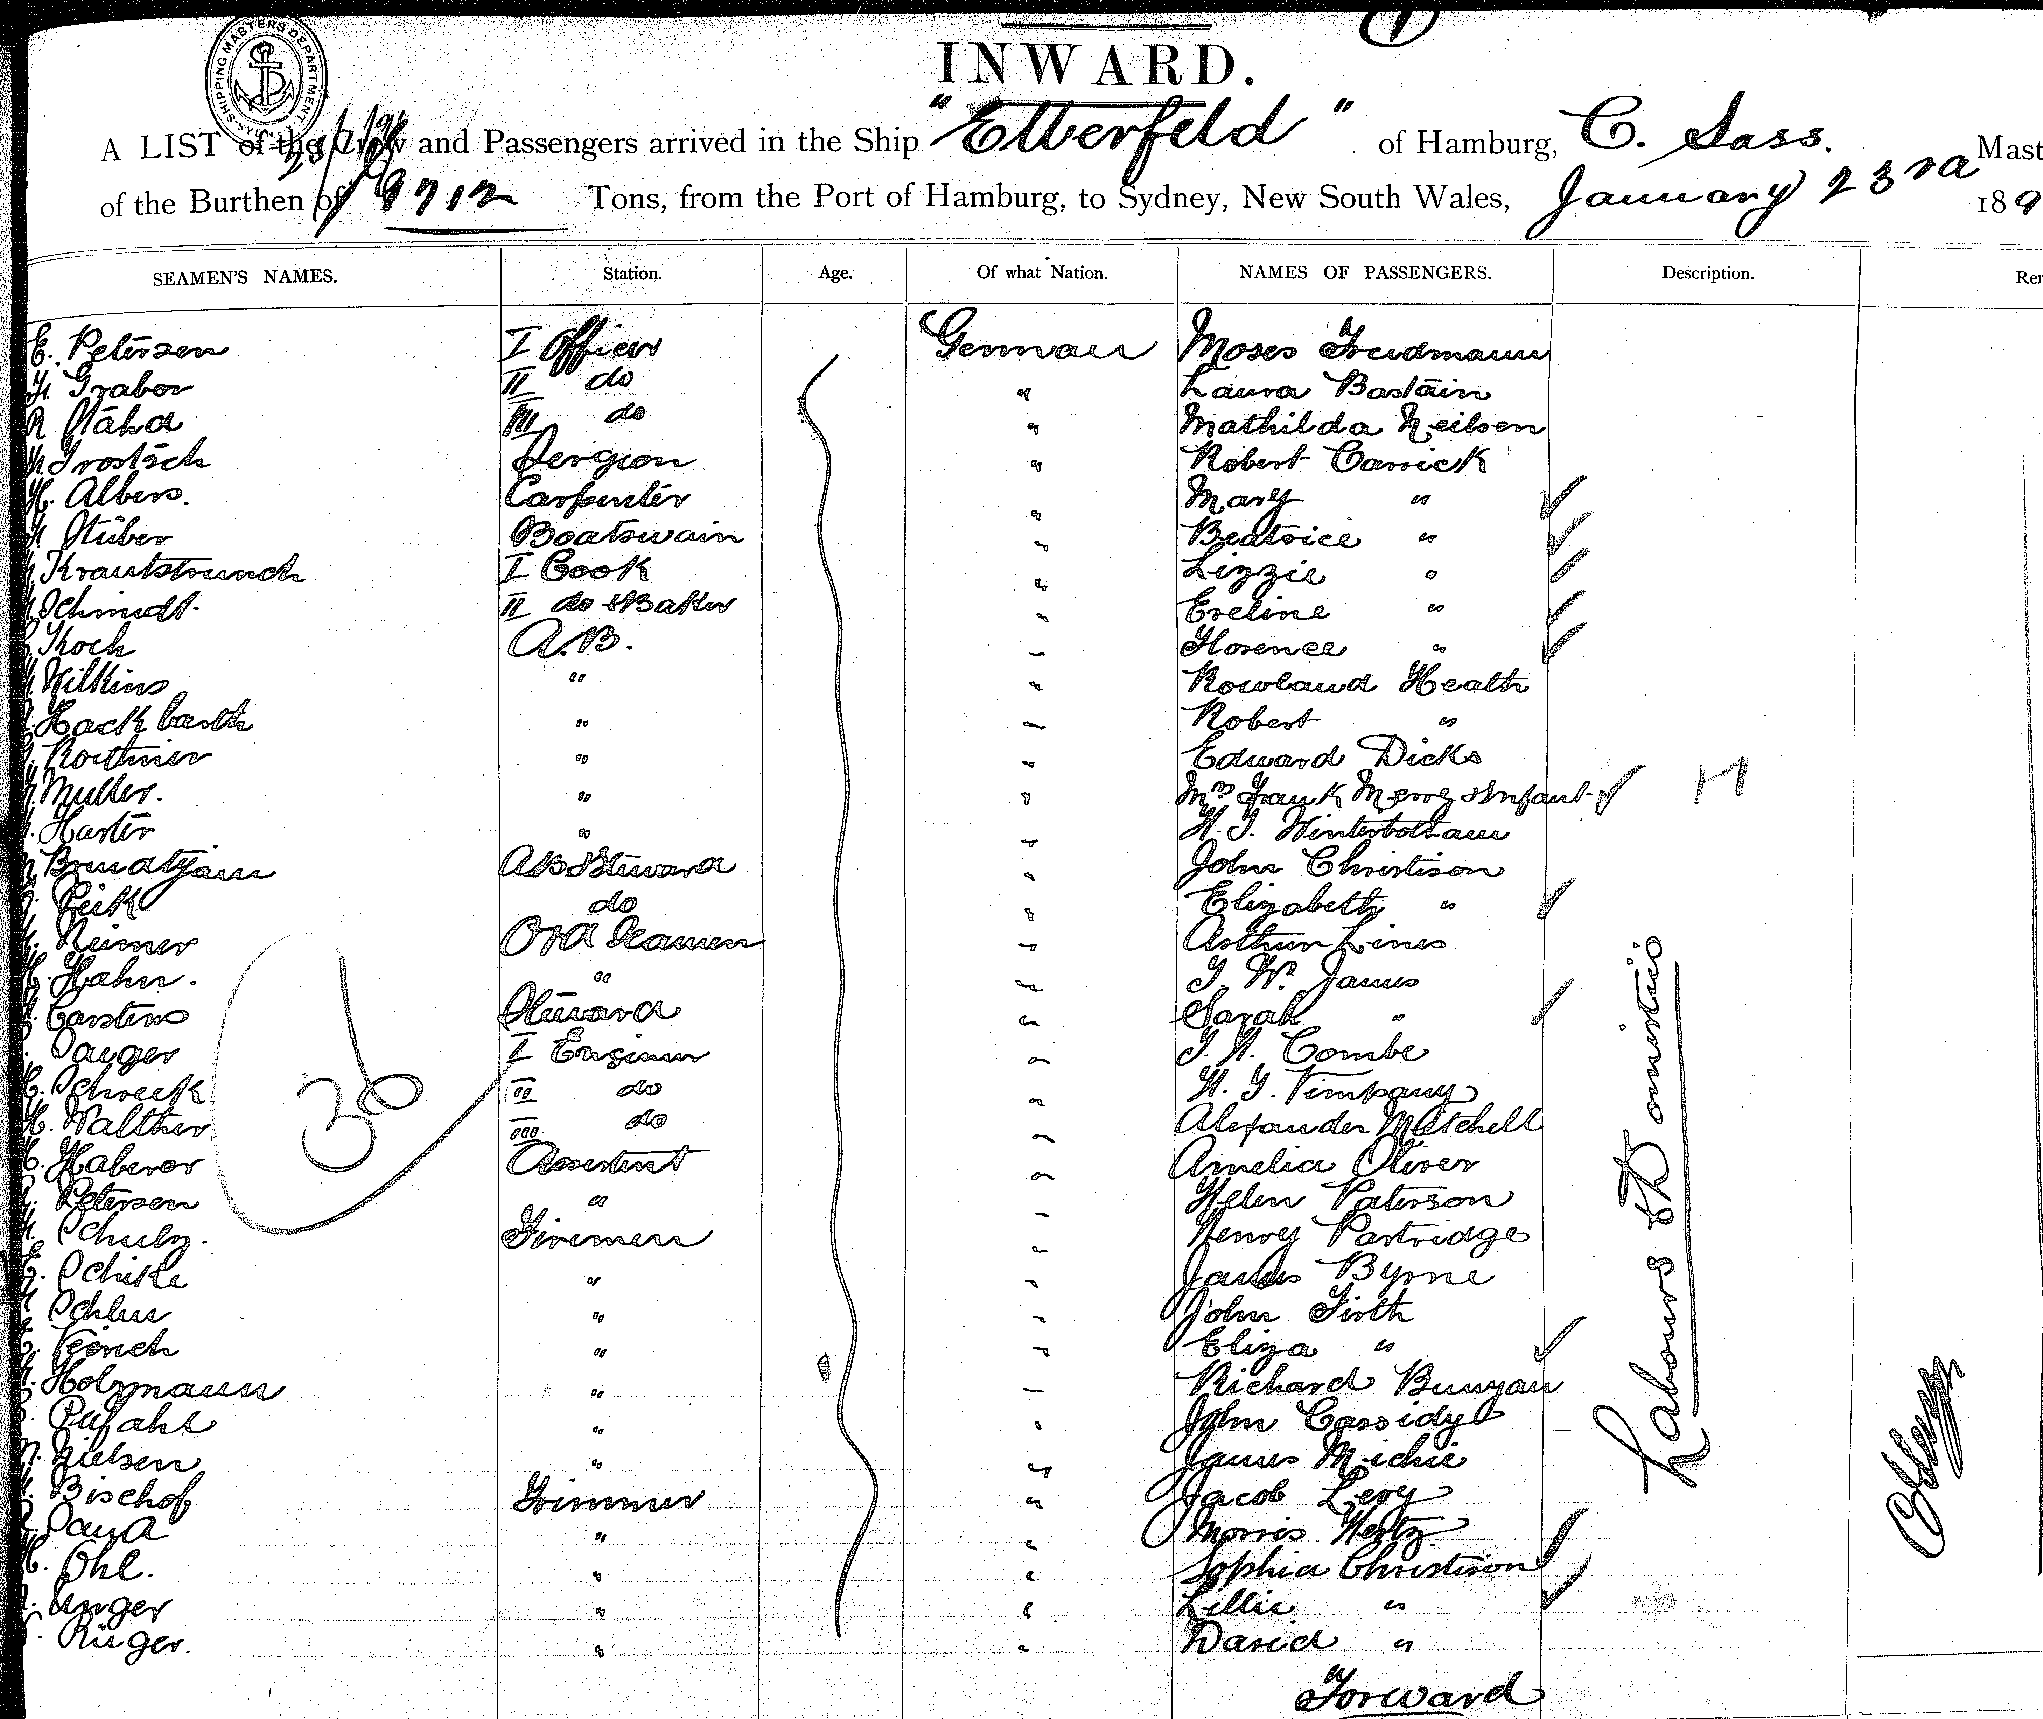 INWARD.
A LIST of the Crew and Passengers arrived in the Ship "Elberfeld" of Hamburg, C. Sass. Mast
of the Burthen of 1712 Tons, from the Port of Hamburg, to Sydney, New South Wales, January 23rd 189
SEAMEN'S NAMES. Station. Age. Of what Nation. NAMES OF PASSENGERS. Description. Rem
E. Petersen I Officer German Moses Freudmann
Grabor II do " Laura Bastain
R Stähd III do " Mathilda Neilsen
Trostsch Sergion " Robert Carrick
H. Albers. Carpenter " Mary "
Stüber Boatswain " Beatrice "
Krautstrunck I Cook " Lizzie "
Schmidt. II do & Baker " Eveline "
Koch A.B. " Florence "
Wilkins " " Rowland Heath
Hackbarth " " Robert "
Rortmer " " Edward Dicks
Muller. " " Mrs Frank Merry & Infant
Harter " " H. J. Winterbottam
AB Steward " John Christison
Peik do " Elizabeth "
Reimer Ord Seamen " Arthur Lines
Hahn. " " J. W. James
Carstens Steward " Sarah "
Sauger I Engineer " J. H. Combe
Schreck II do " H. G. Timpany
H. Walther III do " Alexander Mitchell
Haberor Assistent " Amelia Oliver
Petersen " " Helen Paterson
Schulz. Firemen " Henry Partridge
Schike " " James Byrne
Schlue " " John Firth
Feinch " " Eliza "
Holzmann " " Richard Bunyan
Pufahl " " John Cassidy
Nielsen " " James Michie
Bischof Trimmer " Jacob Levy
Sand " " Morris Hertz
Ohl. " " Sophia Christison
Unger " " Lillie "
Rüger. " " David "
Forward
36
Labourers & Domestics